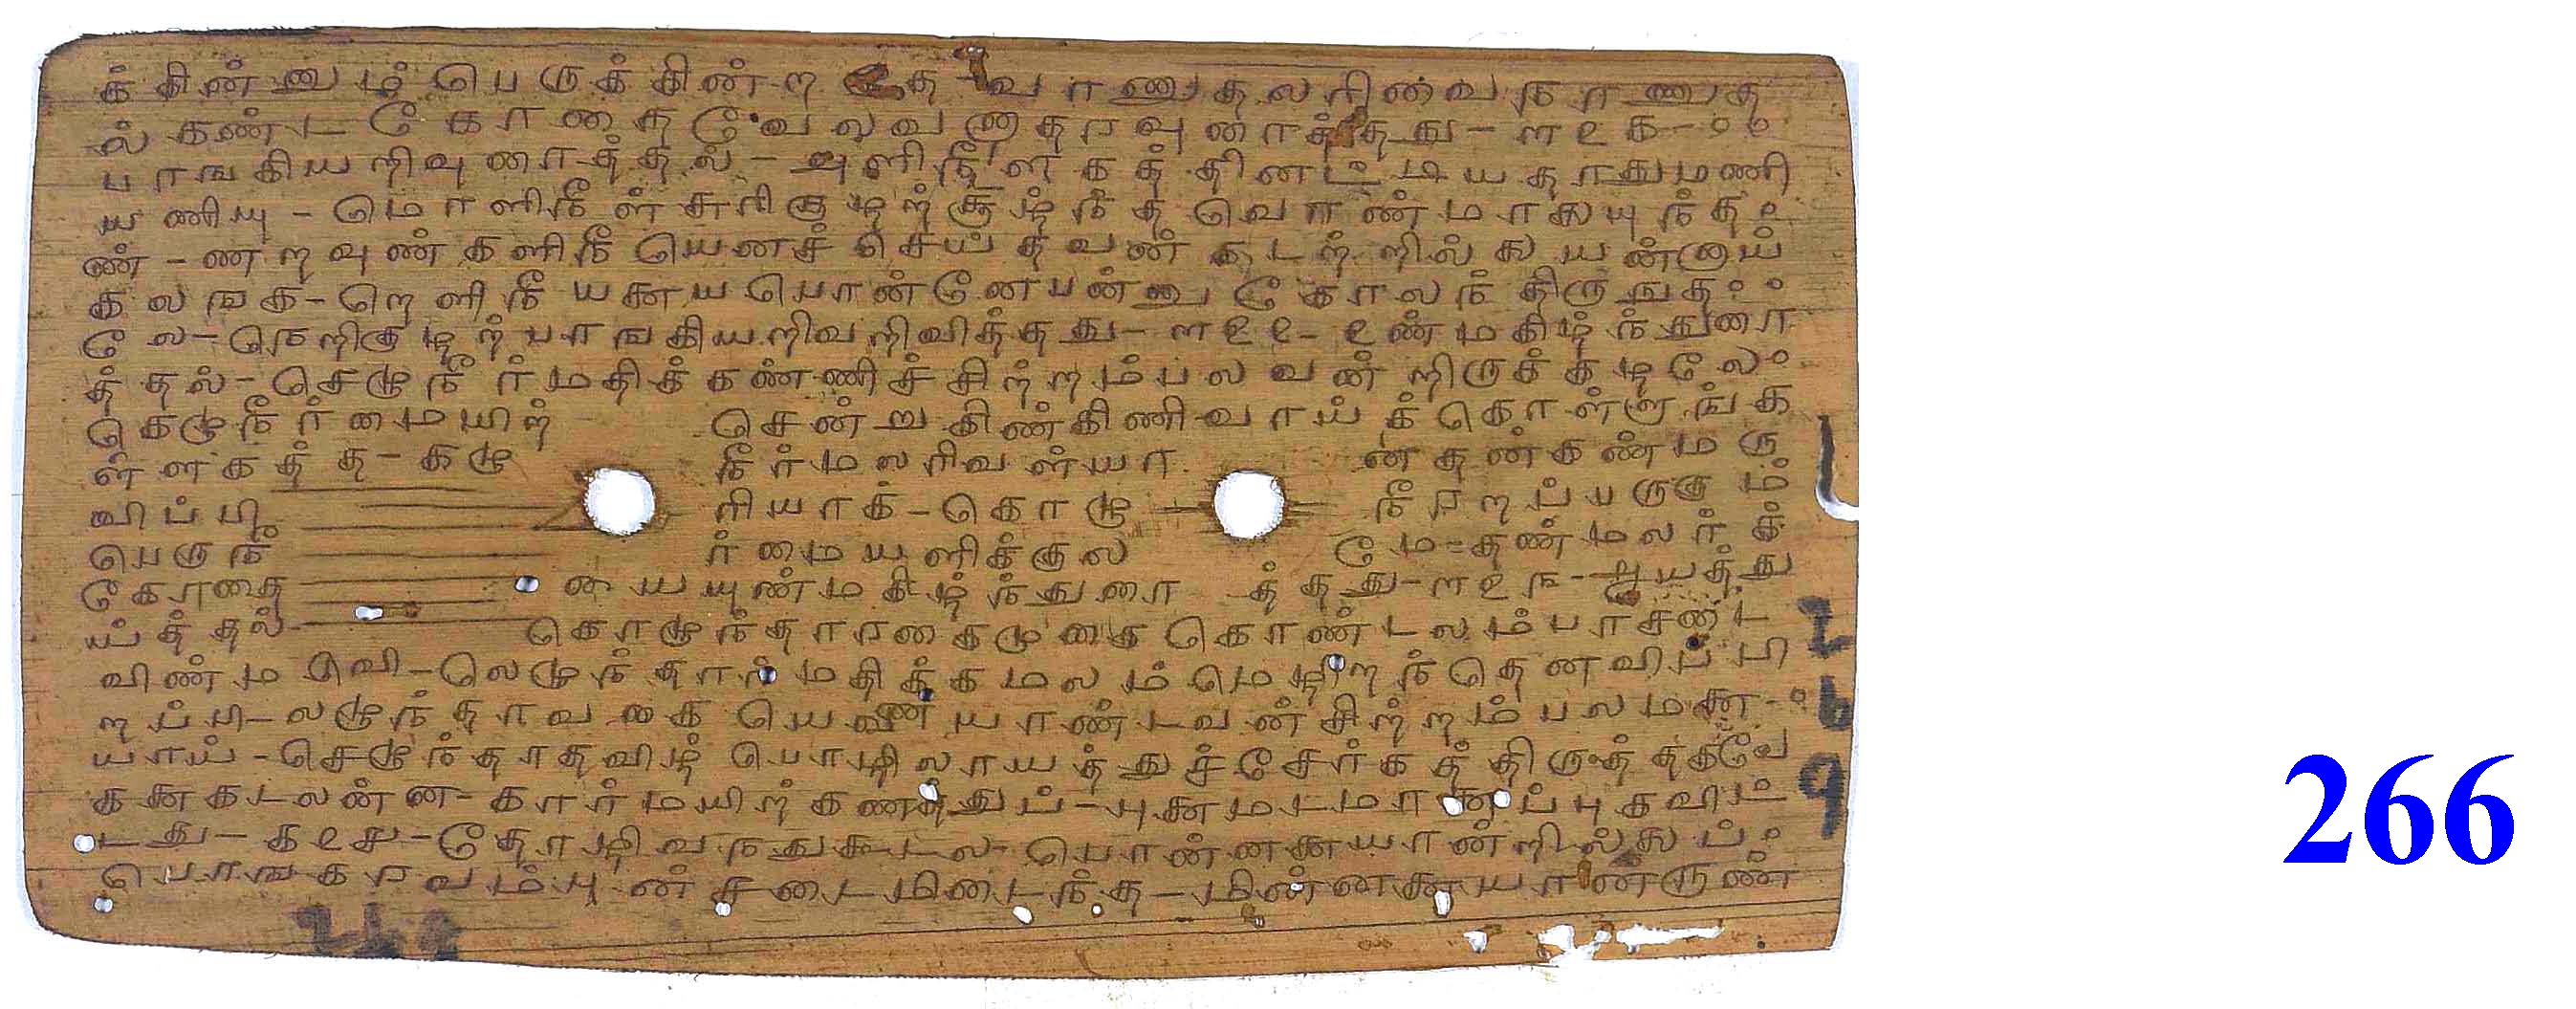 க்கின்றுமுபெருக்கின்றதே-வாணுதலரிவைநாணுத
ல்கண்டகோதைவேலவனாதரவுரைத்தது-ள௨௧-
பாங்கியறிவுரைத்தல்-அளிநீளகத்தினட்டியதாதுமணி
யணியு-மொளிநீள்சுரிகுழற்சூழ்ந்தவொண்மாலையுந்த
ண்-ணறவுண்களிநீயெனச்செய்தவன்கடற்றில்லையன்றாய்
கலங-றெளிநீயனையபொன்னேபன்னுகோலந்திருநுத
லே-நெறிகுழற்பாங்கியறிவறிவித்தது-ள௨௨-உண்மகிழ்ந்துரை
த்தல்-செழுநீர்மதிக்கண்ணிச்சிற்றம்பலவன்றிருக்கழலே
கெழுநீர்மையிற் சென்றுகிண்கிணிவாய்க்கொள்ளுங்க
ள்ளகத்த-கழு நீர்மலரிவள்யா ன்தன்கண்மரு
விப்பி ரியாக்-கொழு நீரறப்பருகும்
பெருந் ர்மையளிக்குல மே-தண்மலர்க்
கோதை யையுண்மகிழ்ந்துரை த்தது-ள௨௩-ஆயத்து
ய்த்தல்- கொழுந்தாரகைமுகைகொண்டலம்பாசடை
விண்மடுவி-லெழுந்தார்மதிக்கமலம்மெழிறந்தெனவிப்பி
றப்பி-லழுந்தாவகையெனையாண்டவன்சிற்றம்பலமனை
யாய்-செழுந்தாதவிழ்பொழிலாயத்துச்சேர்கத்திருத்தகவே
கனைகடலன்ன-கார்மயிற்கணத்துப்-புனமடமானைப்புகவிட்
டது-ள௨௪-தோழிவந்துகூடல்-பொன்னனையான்றில்லைப்
பொங்கரவம்புன்சடைமிடைந்த-மின்னனையானருண்
266